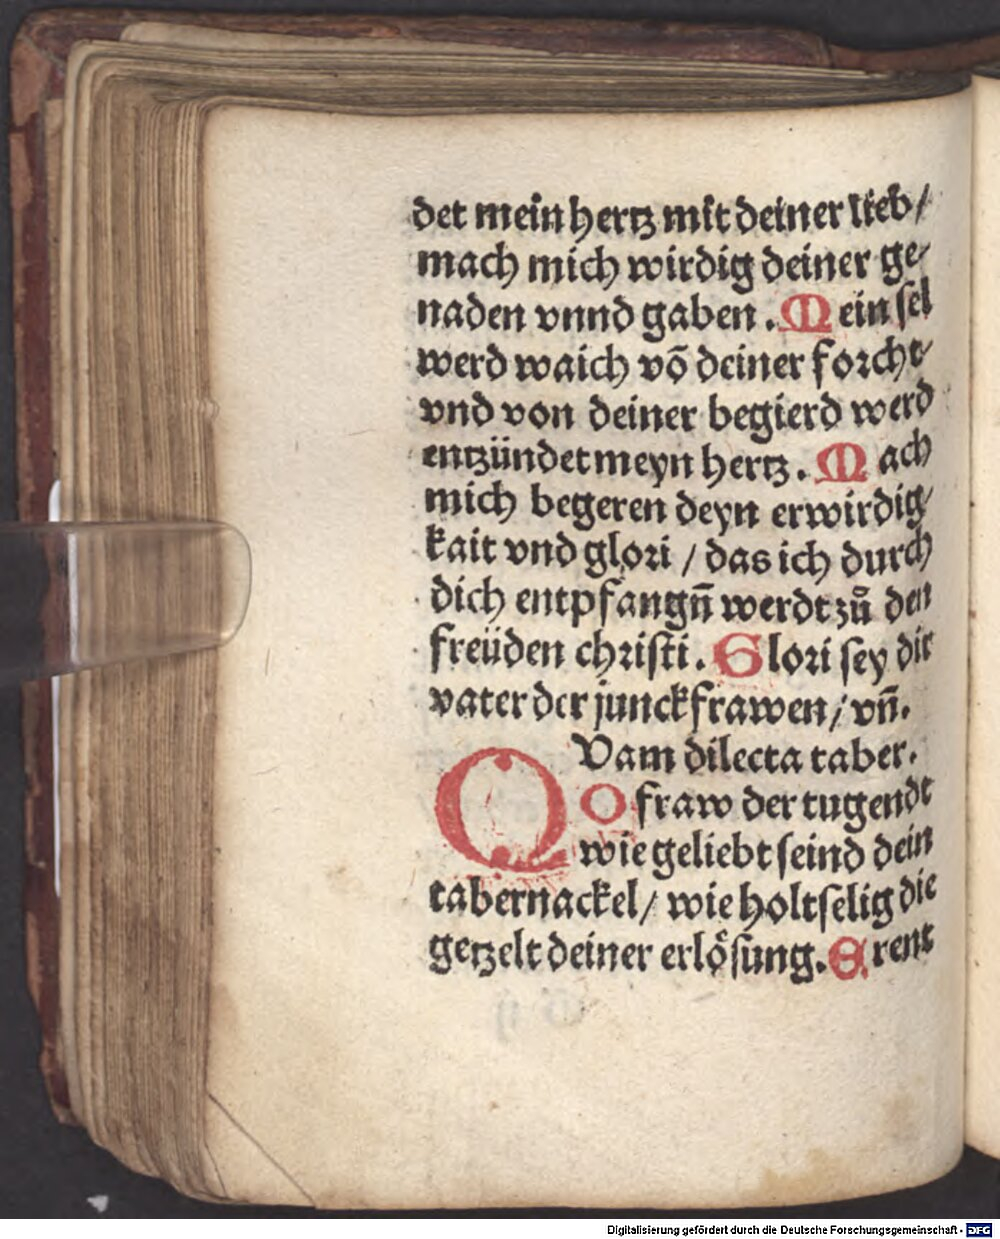 det mein hertz mit deiner lieb/
mach mich wirdig deiner ge/
naden vnnd gaben. Mein sel
werd waich võ deiner forcht/
vnd von deiner begierd werd
entzündet meyn hertz. Mach
mich begeren deyn erwirdig/
kait vnd glori / das ich durch
dich entpfangn̄ werdt zů den
freüden christi. Glori sey dir
vater der junckfrawen/ vñ.
QVam dilecta taber.
O fraw der tugendt
wie geliebt seind dein
tabernackel/ wie holtselig die
getzelt deiner erlösung. Erent
Digitalisierung gefördert durch die Deutsche Forschungsgemeinschaft - DFG